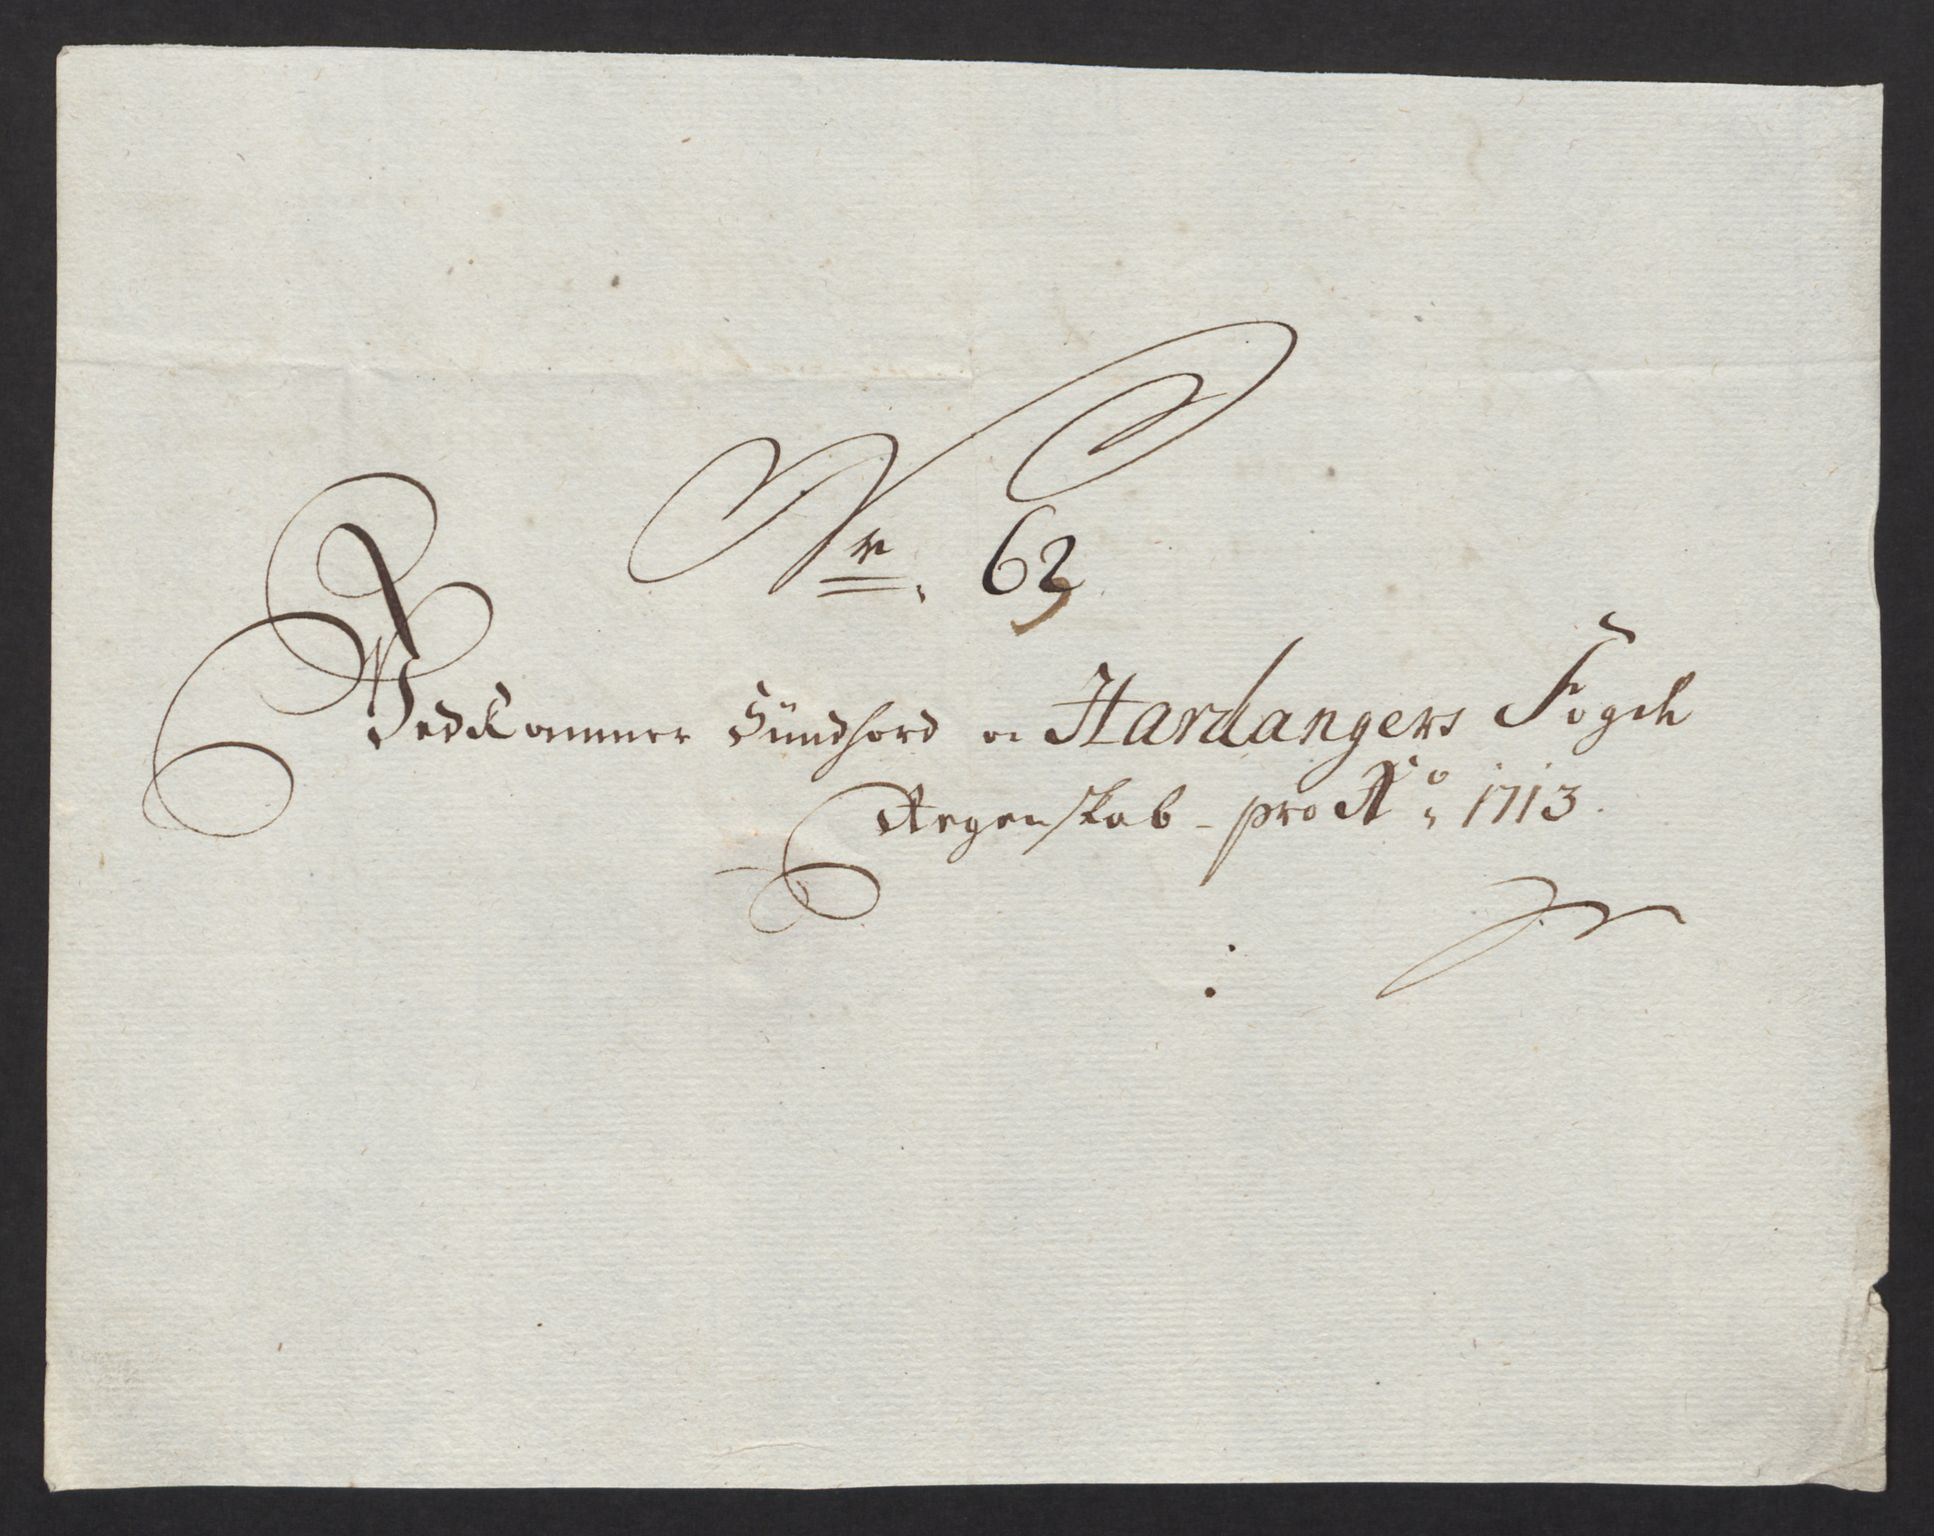 Nr. 62
Vedkommer Sündhord oc Hardangers Fogd
Regenskab - pro Ao 1713.